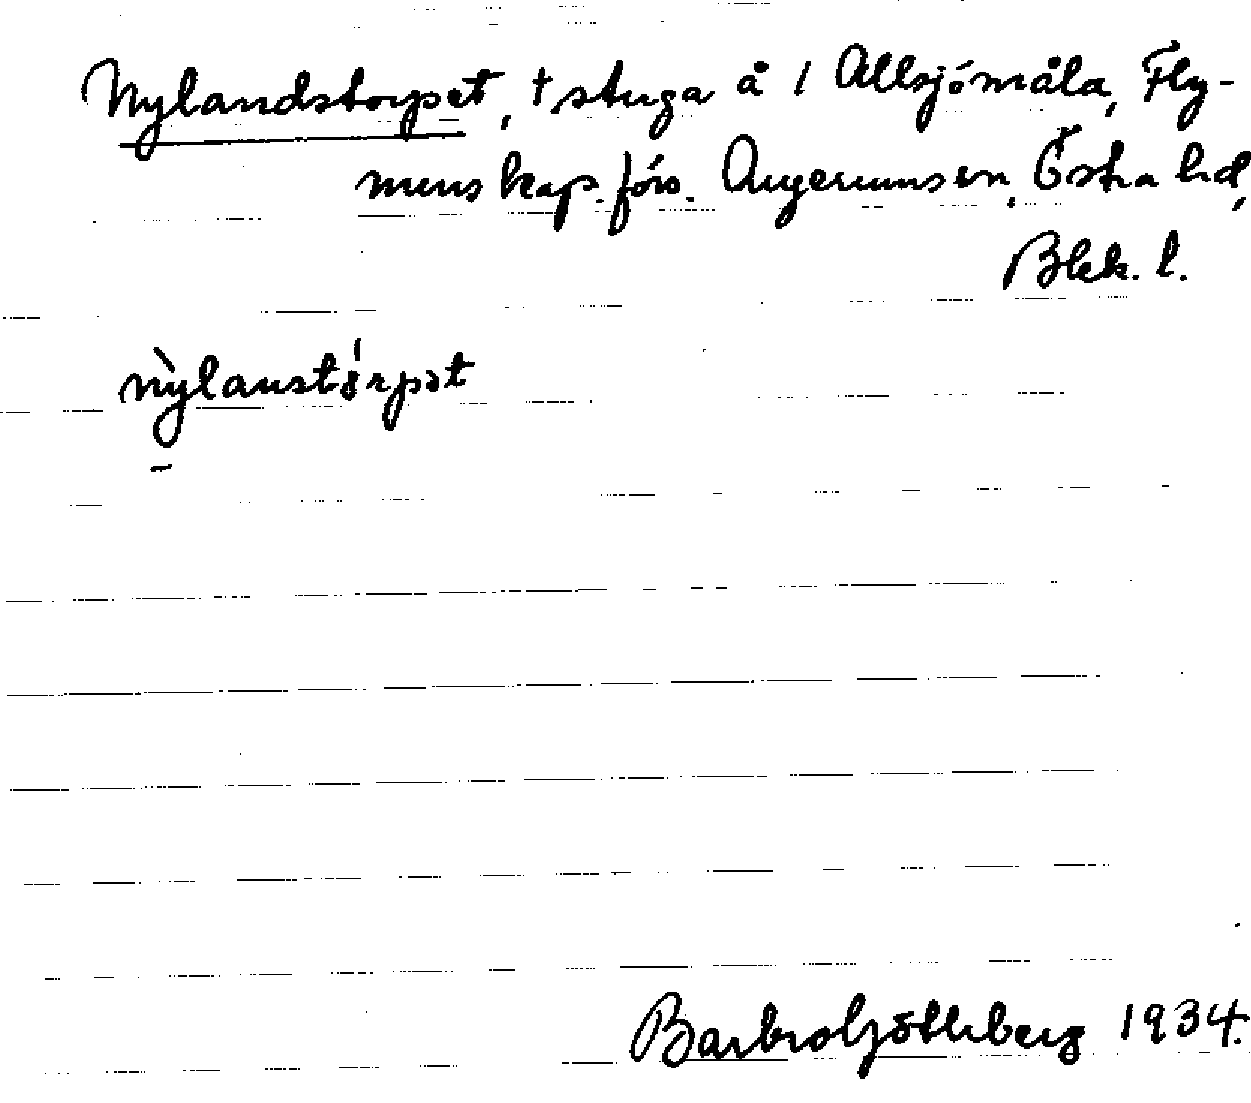 Nylandstorpet, † stuga å 1 Allsjömåla, Fly-
mens kap. förs. Augerumsen, Östra hd,
Blek. l.
nỳlanstórpət
Barbro Götlberg 1934.